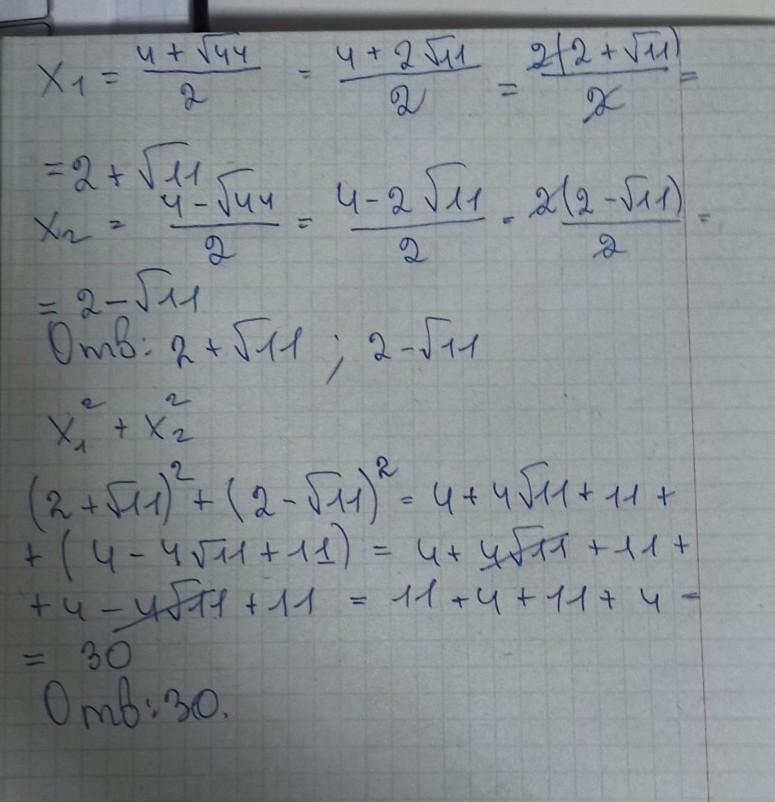 x₁ = (4 + √44)/2 = (4 + 2√11)/2 = 2(2 + √11)/2 =
= 2 + √11
x₂ = (4 - √44)/2 = (4 - 2√11)/2 = 2(2 - √11)/2 =
= 2 - √11
Отв: 2 + √11 ; 2 - √11
x₁² + x₂²
(2 + √11)² + (2 - √11)² = 4 + 4√11 + 11 +
+ (4 - 4√11 + 11) = 4 + 4√11 + 11 +
+ 4 - 4√11 + 11 = 11 + 4 + 11 + 4 =
= 30
Отв: 30.